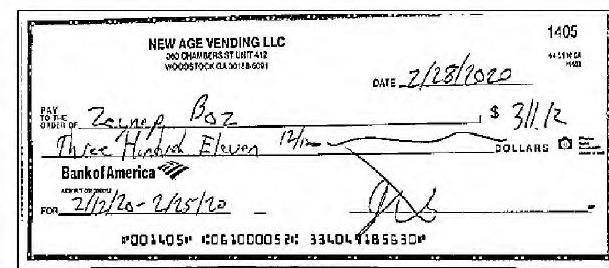 1405
NEW AGE VENDING LLC
360 CHAMBERS ST UNIT 412
WOODSTOCK GA 30188-5091
DATE 2/28/2020
PAY TO THE ORDER OF Zeynep Boz $ 311.12
Three Hundred Eleven 12/100 DOLLARS
Bank of America
FOR 2/12/20 - 2/25/20
⑈001405⑈ ⑆061000052⑆ 334049185630⑈